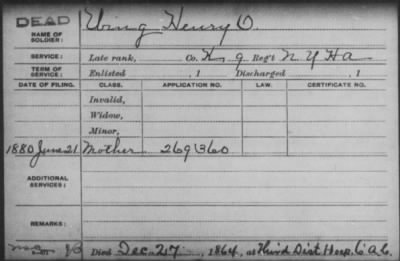 DEAD
NAME OF SOLDIER: Ebing Henry O.
SERVICE: Late rank, Co. K 9 Reg't N Y H A
TERM OF SERVICE: Enlisted , 1 Discharged , 1
DATE OF FILING. CLASS. APPLICATION NO. LAW. CERTIFICATE NO.
Invalid,
Widow,
Minor,
1880 June 21 Mother 269360
ADDITIONAL SERVICES:
REMARKS:
Died Dec. 27, 1864, at Third Dist Hosp. 6 A.C.